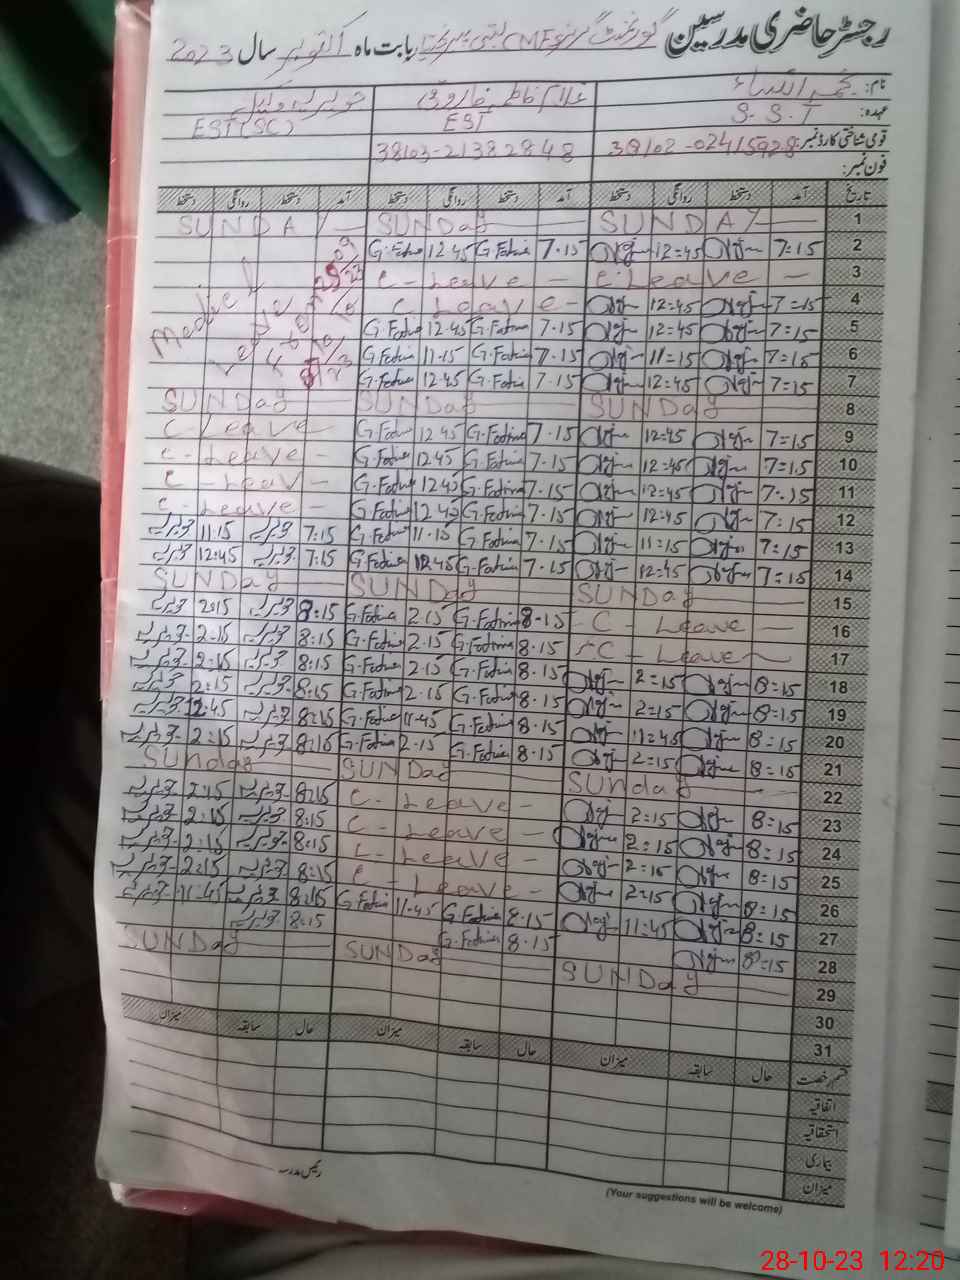 رجسٹر حاضری مدرسین گورنمنٹ گرلز CMES بابت ماہ اکتوبر سال 2023
نام: نجم النساء غلام فاطمہ فاروقی
عہدہ: S.S.T EST EST(SC)
قومی شناختی کارڈ نمبر: 38102-02415928 38103-21382848
فون نمبر:
تاریخ آمد دستخط روانگی دستخط آمد دستخط روانگی دستخط آمد دستخط روانگی دستخط
1 SUNDAY SUNDay SUNDAY
2 7=15 12=45 7.15 G.Fatima 12 45 G.Fatima
3 C.Leave C-Leave
4 7=15 12=45 C Leave
5 7=15 12=45 7.15 G.Fatima 12.45 G.Fatima
6 7=15 11=15 7.15 G.Fatima 11.15 G.Fatima
7 7=15 12=45 7.15 G.Fatima 12.45 G.Fatima
Medical Leave from
8 SUNDay SUNDay SUNDay
9 7=15 12=45 7.15 G.Fatima 12 45 G.Fatima C-Leave
10 7=15 12=45 7.15 G.Fatima 12 45 G.Fatima C-Leave
11 7=15 12=45 7.15 G.Fatima 12 45 G.Fatima C-Leav
12 7=15 12=45 7.15 G.Fatima 12 45 G.Fatima C-Leave
13 7=15 11=15 7.15 G.Fatima 11.15 G.Fatima 7:15 11:15
14 7=15 12=45 7.15 G.Fatima 12.45 G.Fatima 7:15 12:45
15 SUNDay SUNDay SUNDay
16 C-Leave 8.15 G.Fatima 2.15 G.Fatima 8:15 2:15
17 C-Leave 8.15 G.Fatima 2.15 G.Fatima 8:15 2-15
18 8=15 2=15 8.15 G.Fatima 2.15 G.Fatima 8:15 2:15
19 8=15 2=15 8.15 G.Fatima 2.15 G.Fatima 8:15 2:15
20 8=15 11=45 8.15 G.Fatima 11-45 G.Fatima 8:15 12:45
21 8=15 2=15 8.15 G.Fatima 2.15 G.Fatima 8:15 2:15
22 SUNday SUNDay SUNday
23 8=15 2=15 C-Leave 8:15 2:15
24 8=15 2=15 C-Leave 8:15 2:15
25 8=15 2=15 C-Leave 8:15 2:15
26 8=15 2=15 C-Leave 8:15 2:15
27 8=15 11=45 8.15 G.Fatima 11-45 G.Fatima 8:15 11-45
28 8=15 8.15 G.Fatima 8:15
29 SUNDay SUNDay SUNDay
30
31
قسم رخصت حال سابقہ میزان حال سابقہ میزان حال سابقہ میزان
اتفاقیہ
استحقاقیہ
بیماری
میزان
رئیس مدرسہ
(Your suggestions will be welcome)
28-10-23 12:20